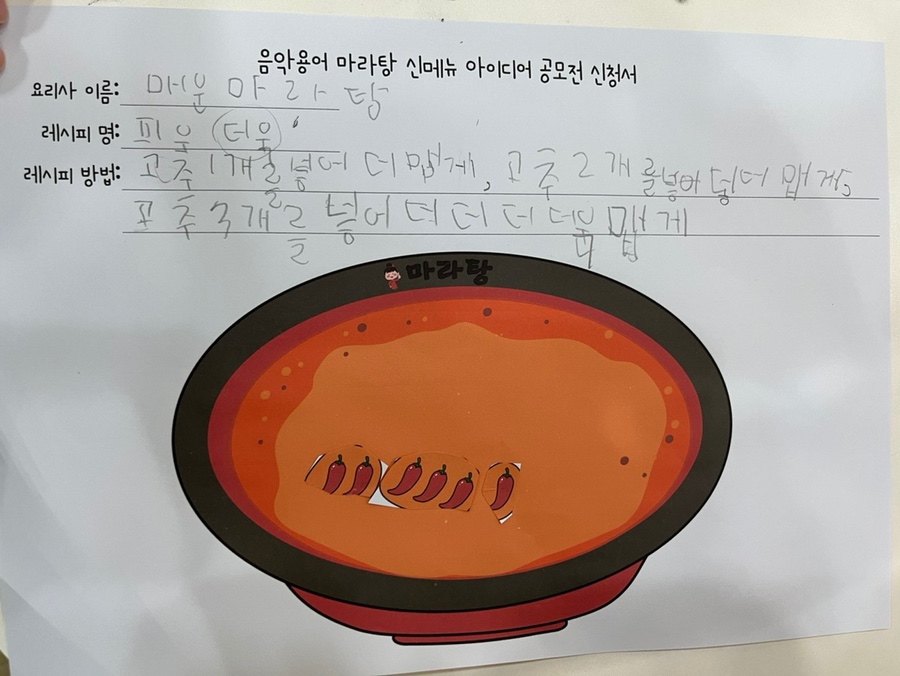 음악용어 마라탕 신메뉴 아이디어 공모전 신청서
요리사 이름: 매운 마라탕
레시피 명: 피우 더우
레시피 방법: 고추 1개를 넣어 더 맵게, 고추 2개를 넣어 더 맵게,
고추 3개를 넣어 더 더 더 맵게
마라탕